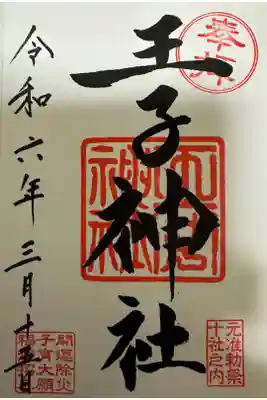 奉拝
元准勅祭
十社之内
王子神社
令和六年三月十五日
開運除災
子育大願